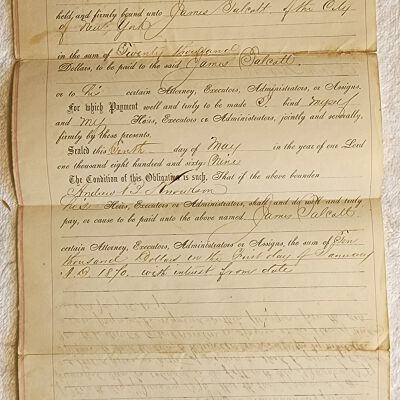 held, and firmly bound unto James Talcott of the City
of New York
in the sum of Twenty thousand
Dollars, to be paid to the said James Talcott
or to his certain Attorney, Executors, Administrators, or Assigns.
For which Payment well and truly to be made I bind myself
and my Heirs, Executors or Administrators, jointly and severally,
firmly by these presents.
Sealed this Tenth day of May in the year of our Lord
one thousand eight hundred and sixty Nine
The Condition of this Obligation is such, That if the above bounden
Andrew B
his Heirs, Executors or Administrators, shall and do well and truly
pay, or cause to be paid unto the above named James Talcott
certain Attorney, Executors, Administrators or Assigns, the sum of Ten
thousand Dollars on the First day of January
A.D. 1870 with interest from date